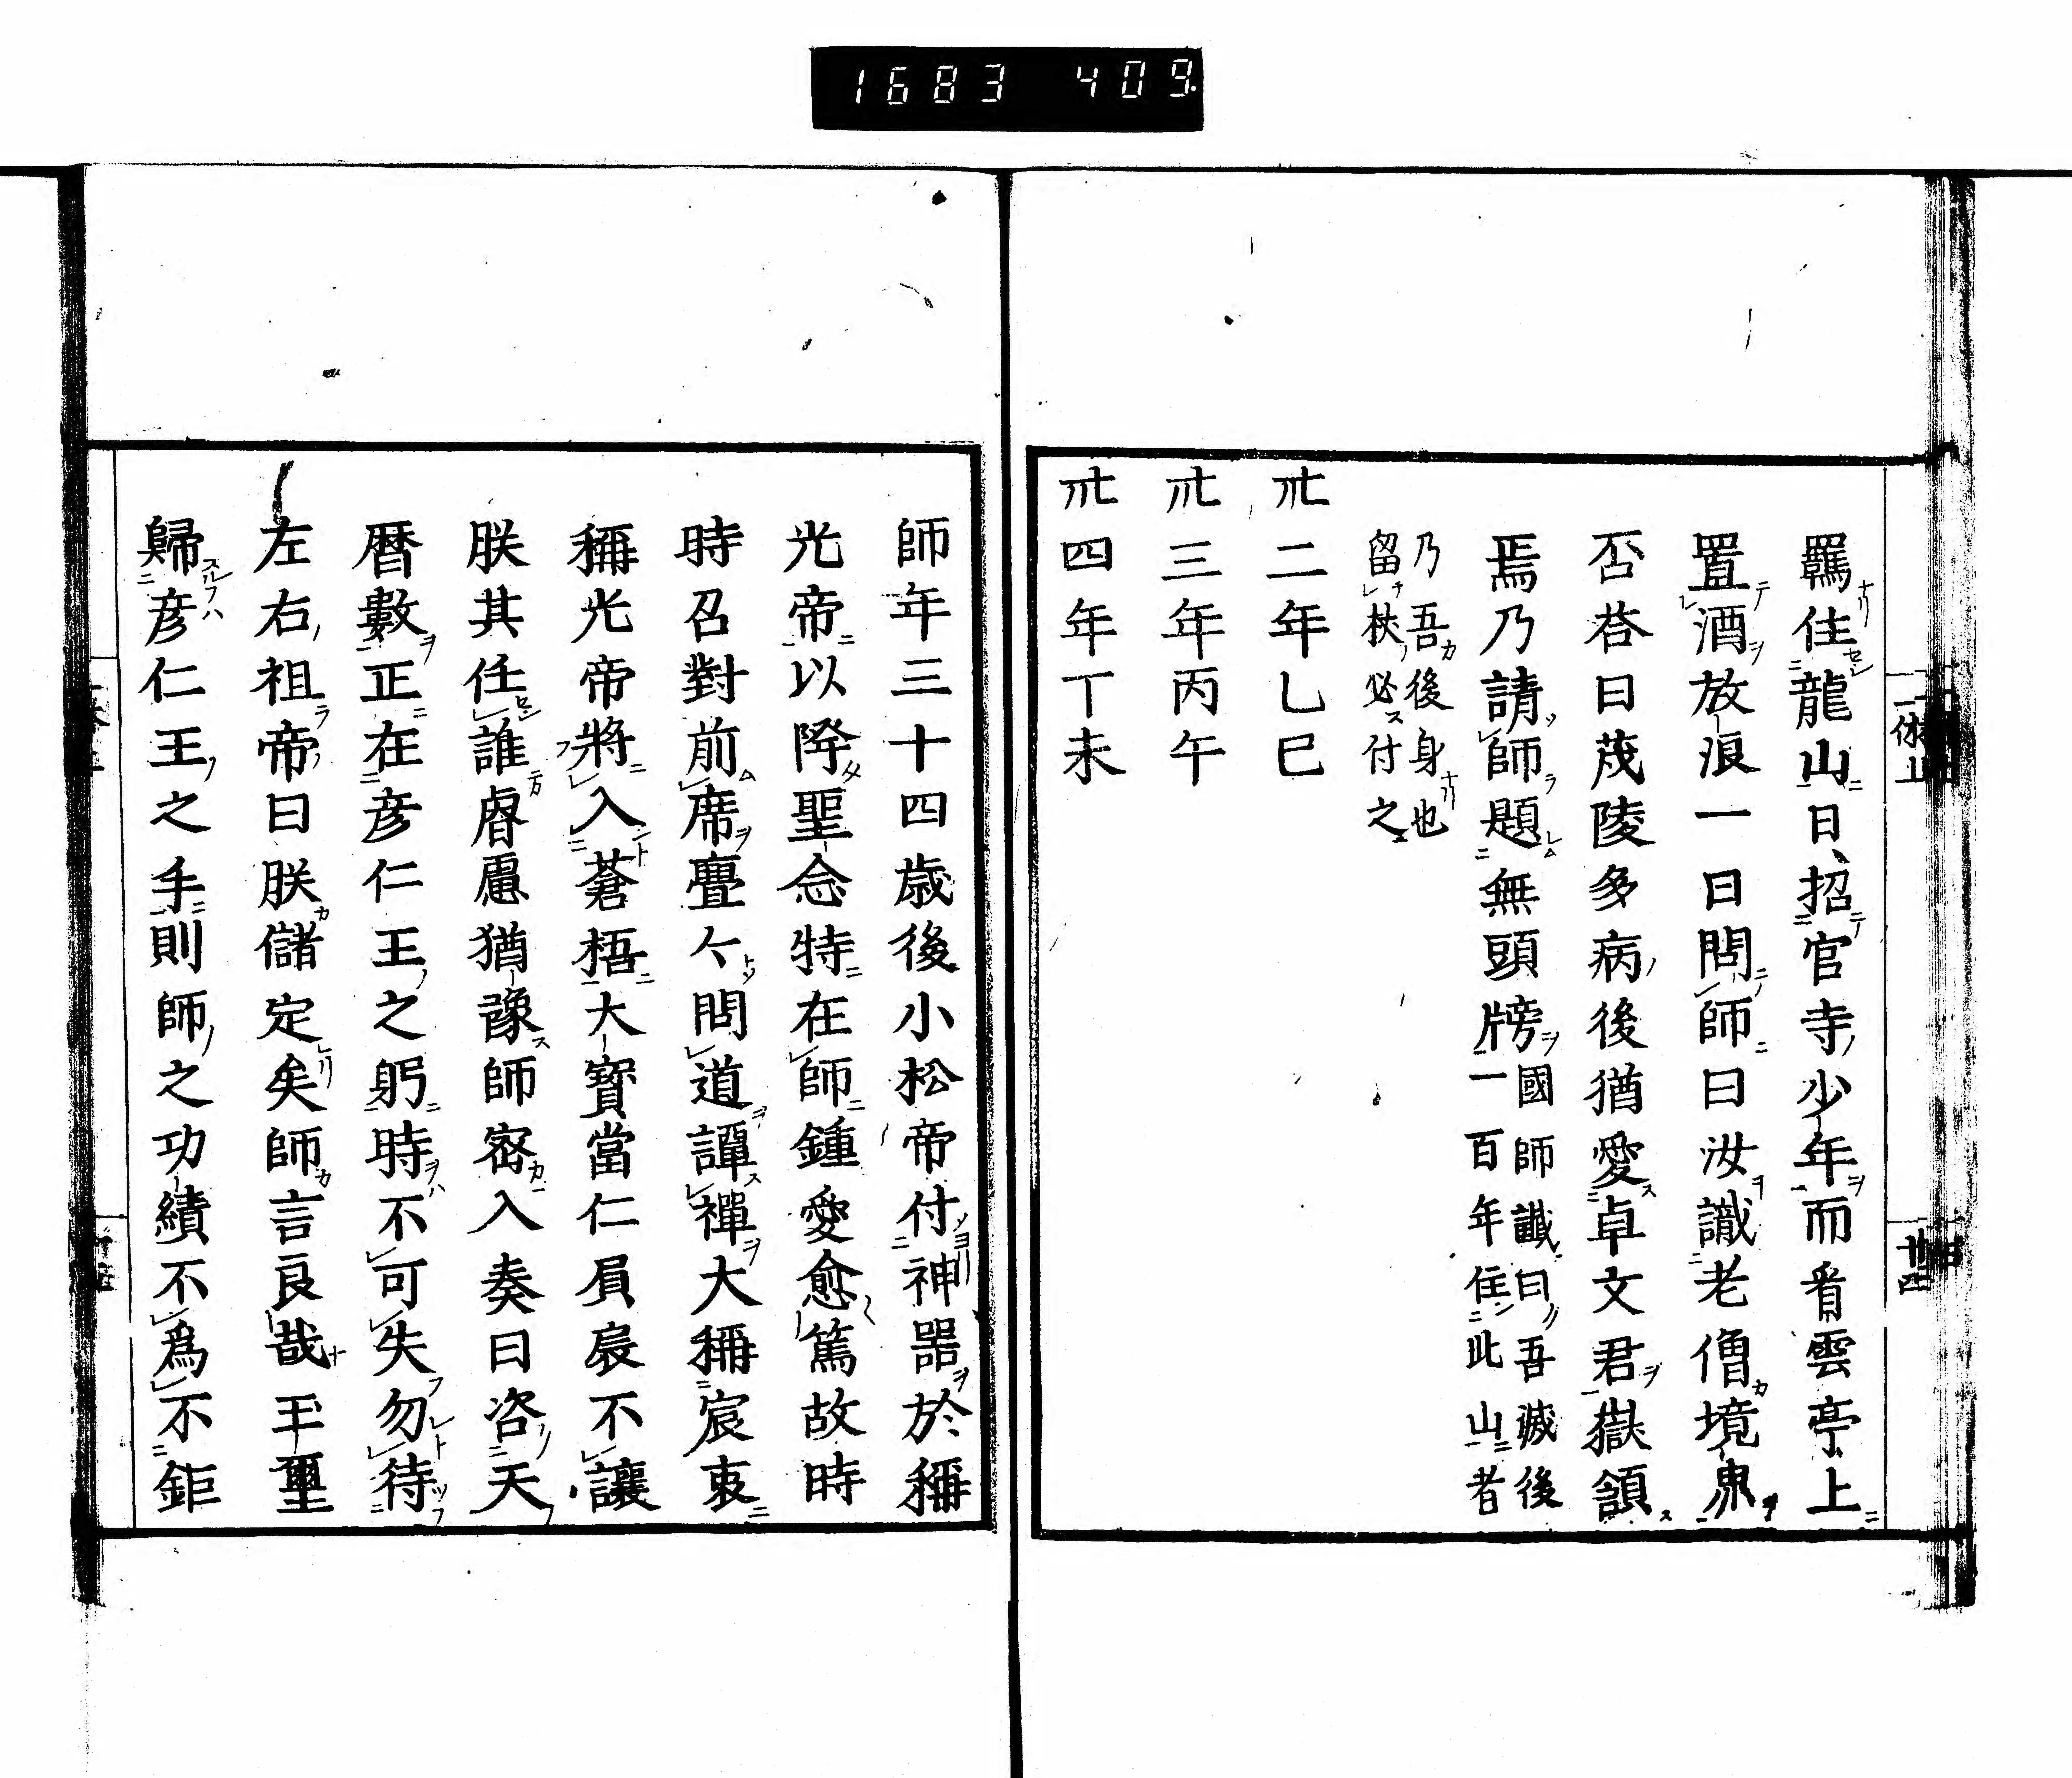 1683 409
羈住龍山日招官寺少年而看雲亭上
置酒放浪一日問師曰汝識老僧境界
否荅曰茂陵多病後猶愛卓文君嶽頷
焉乃請師題無頭牓國師讖曰吾滅後
一百年住此山者
乃吾後身也
留袂必付之
卅二年乙巳
卅三年丙午
卅四年丁未
師年三十四歳後小松帝付神噐於稱
光帝以降聖念特在師鍾愛愈篤故時
時召對前席亹々問道譚禪大稱宸衷
稱光帝將入蒼梧大寳當仁屓扆不讓
朕其任誰睿慮猶豫師宻入奏曰咨天
曆數正在彦仁王之躬時不可失勿待
左右祖帝曰朕儲定矣師言良哉玉璽
歸彦仁王之手則師之功績不爲不鉅